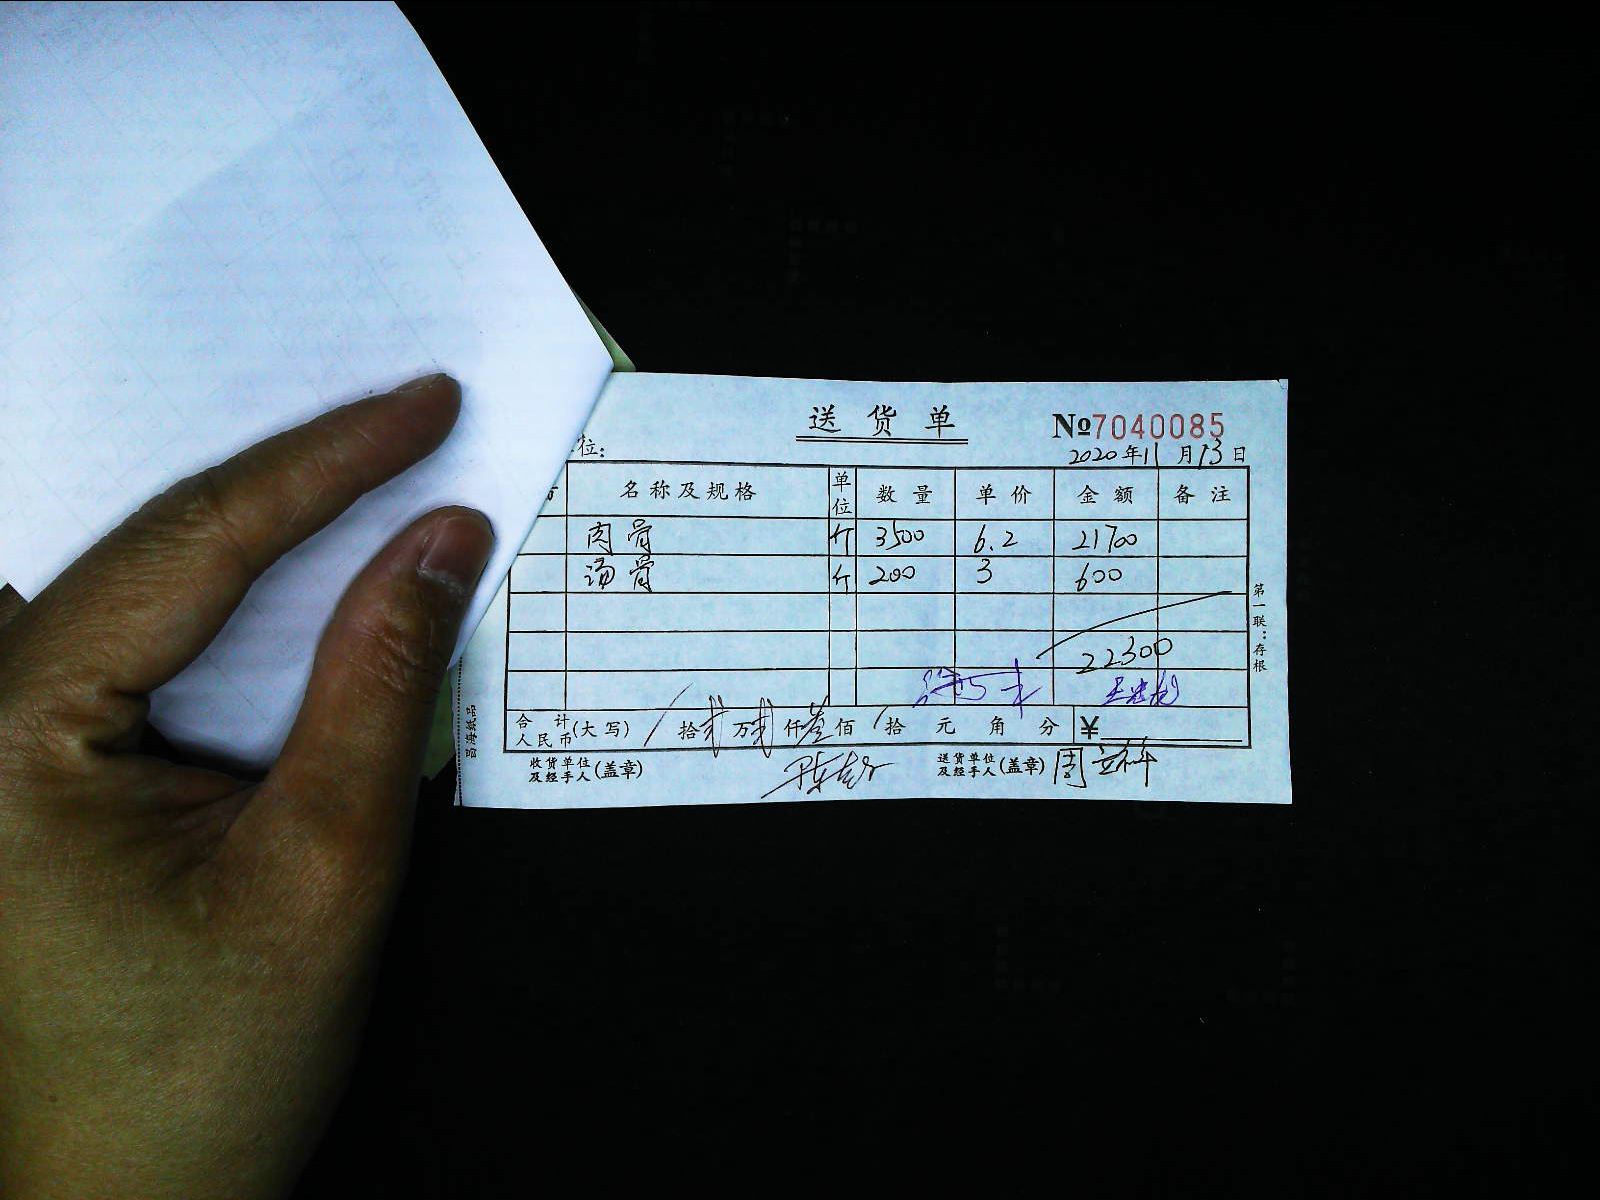 送货单 №7040085
位: 2020年11月13日
名称及规格 单位 数量 单价 金额 备注
肉骨 斤 3500 6.2 21700
汤骨 斤 200 3 600
22300
合计人民币(大写) / 拾贰万贰仟叁佰 / 拾 元 角 分 ¥
收货单位及经手人(盖章) 送货单位及经手人(盖章) 周
第一联:存根
昌海纸品